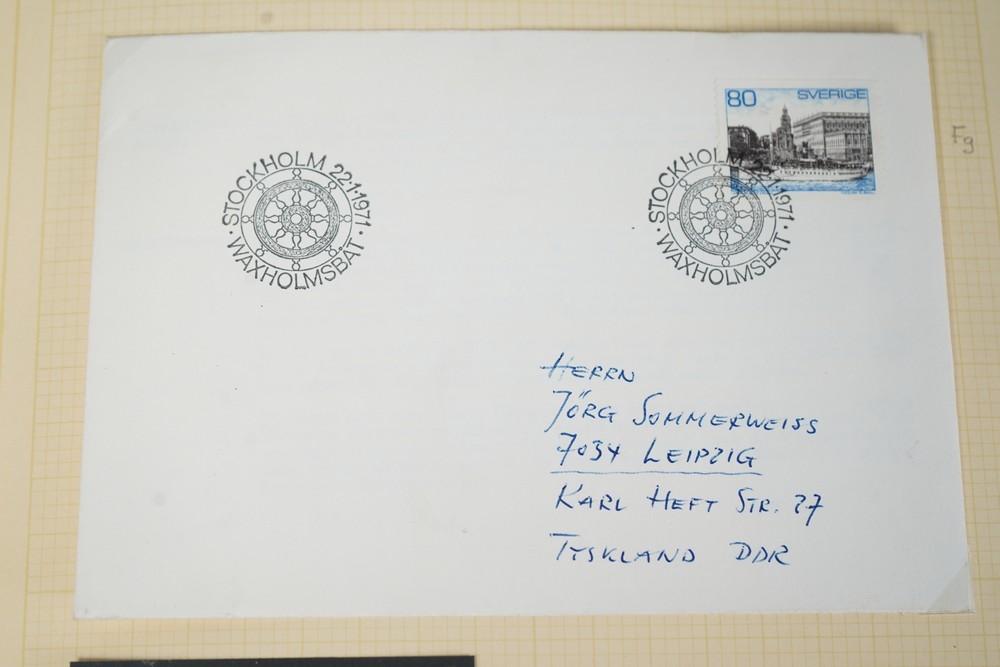 80 SVERIGE
STOCKHOLM 22·1·1971
· WAXHOLMSBÅT ·
STOCKHOLM 22·1·1971
· WAXHOLMSBÅT ·
Fg
HERRN
JÖRG SOMMERWEISS
7034 LEIPZIG
KARL HEFT STR. 27
TYSKLAND DDR